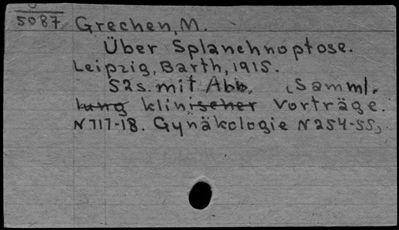 5087
Grechen, M.
Über Splanchnoptose.
Leipzig, Barth, 1915.
52s. mit Abb. (Samml.
lung klinischer Vorträge.
N 717-18. Gynäkologie N 254-55,